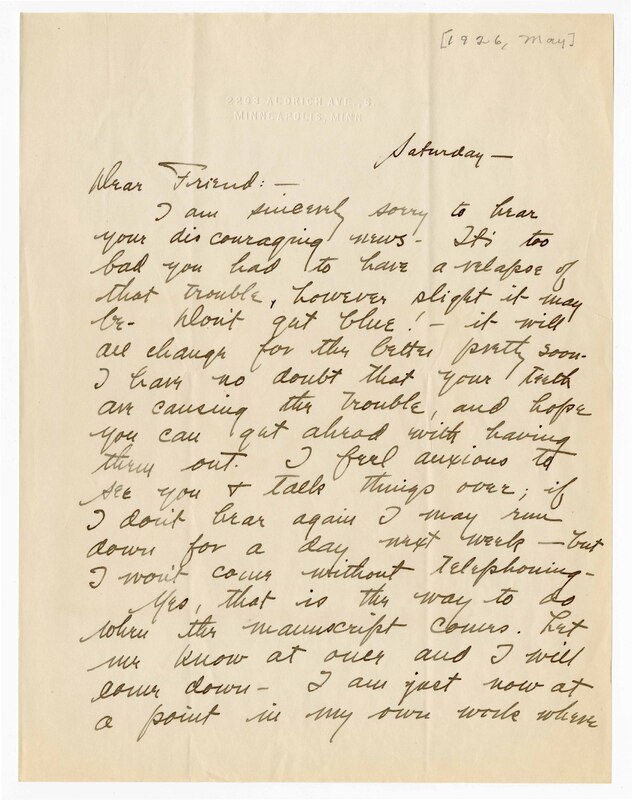 [1926, May]
2203 ALDRICH AVE., S.
MINNEAPOLIS, MINN.
Saturday—
Dear Friend:—
I am sincerely sorry to hear
your discouraging news- It's too
bad you had to have a relapse of
that trouble, however slight it may
be- Don't get blue! — it will
all change for the better pretty soon-
I have no doubt that your teeth
are causing the trouble, and hope
you can get ahead with having
them out. I feel anxious to
see you & talk things over; if
I don't hear again I may run
down for a day next week — but
I won't come without telephoning-
Yes, that is the way to do
when the manuscript comes. Let
me know at once and I will
come down- I am just now at
a point in my own work where